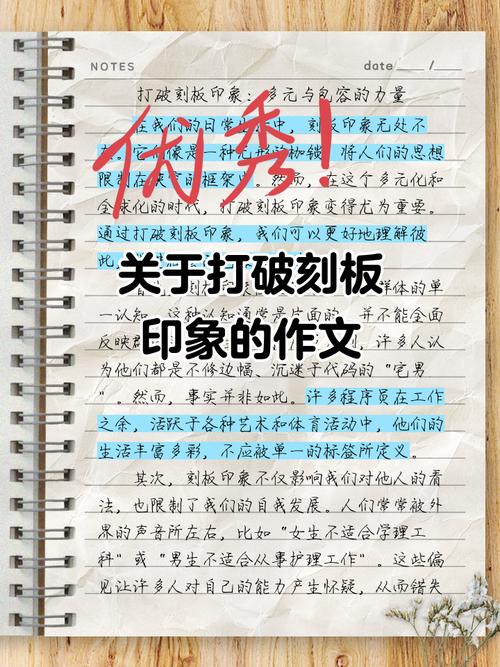 NOTES
date ____ / ____
打破刻板印象：多元与包容的力量
在我们的日常生活中，刻板印象无处不
在。它们像是一种无形的枷锁，将人们的思想
限制在狭窄的框架内。然而，在这个多元化和
全球化的时代，打破刻板印象变得尤为重要。
通过打破刻板印象，我们可以更好地理解彼
此，
优秀！
关于打破刻板
印象的作文
群体的单
一认知。这种认知通常是片面的，并不能全面
反映群
许多人认
为他们都是不修边幅、沉迷于代码的“宅男
”。然而，事实并非如此。许多程序员在工作
之余，活跃于各种艺术和体育活动中，他们的
生活丰富多彩，不应被单一的标签所定义。
其次，刻板印象不仅影响我们对他人的看
法，也限制了我们的自我发展。人们常常被外
界的声音所左右，比如“女生不适合学理工
科”或“男生不适合从事护理工作”。这些偏
见让许多人对自己的能力产生怀疑，从而错失